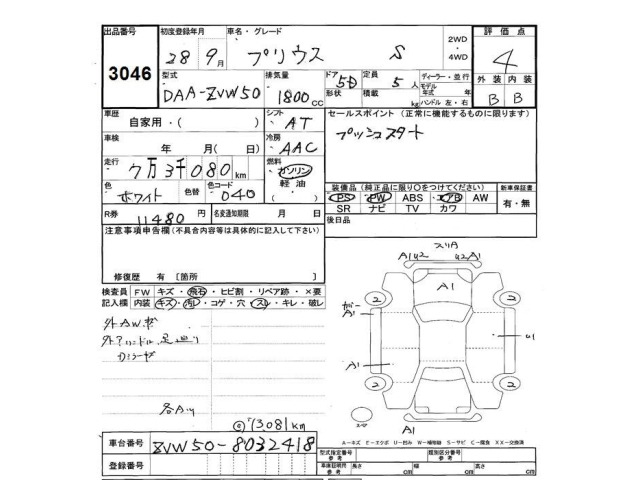 出品番号 初度登録年月 車名・グレード 2WD・4WD 評価点
3046 28 9月 プリウス S 4
型式 排気量 ドア形状 定員 積載 ディーラー・並行 モデル年式 年 ハンドル 左・右 外装 内装
DAA-ZVW50 1800cc 5D 5人 kg B B
車歴 シフト セールスポイント (正常に機能するものに限ります)
自家用・( ) AT プッシュスタート
車検 年 月(日) 冷房 AAC
走行 7万3千080km 燃料 ガソリン 軽油
色 ホワイト 色替 色コード 040
装備品 (純正品に限り○をつけてください) 新車保証書
PS PW ABS エアB AW 有・無
SR ナビ TV カワ
R券 11480円 名変通知期限 月 日 後日品
注意事項申告欄 (不具合内容等は具体的に記入して下さい)
修復歴 有 [箇所 ]
検査員記入欄 FW キズ・飛石・ヒビ割・リペア跡・×要
内装 キズ・汚レ・コゲ・穴・スレ・キレ・破レ
スリA
A1 U2 U2 A1
A1
2 2
A1
U1
A1
2 2
A1
外AWキズ
外ハンドル 足廻り
各AU
@73,081km
車台番号 ZVW50-8032418
登録番号
A-キズ E-エクボ U-凹み W-補修跡 S-サビ C-腐食 XX-交換済
型式指定番号 参考 類別区分番号 参考
車庫証明用 参考 長さ cm 幅 cm 高さ cm